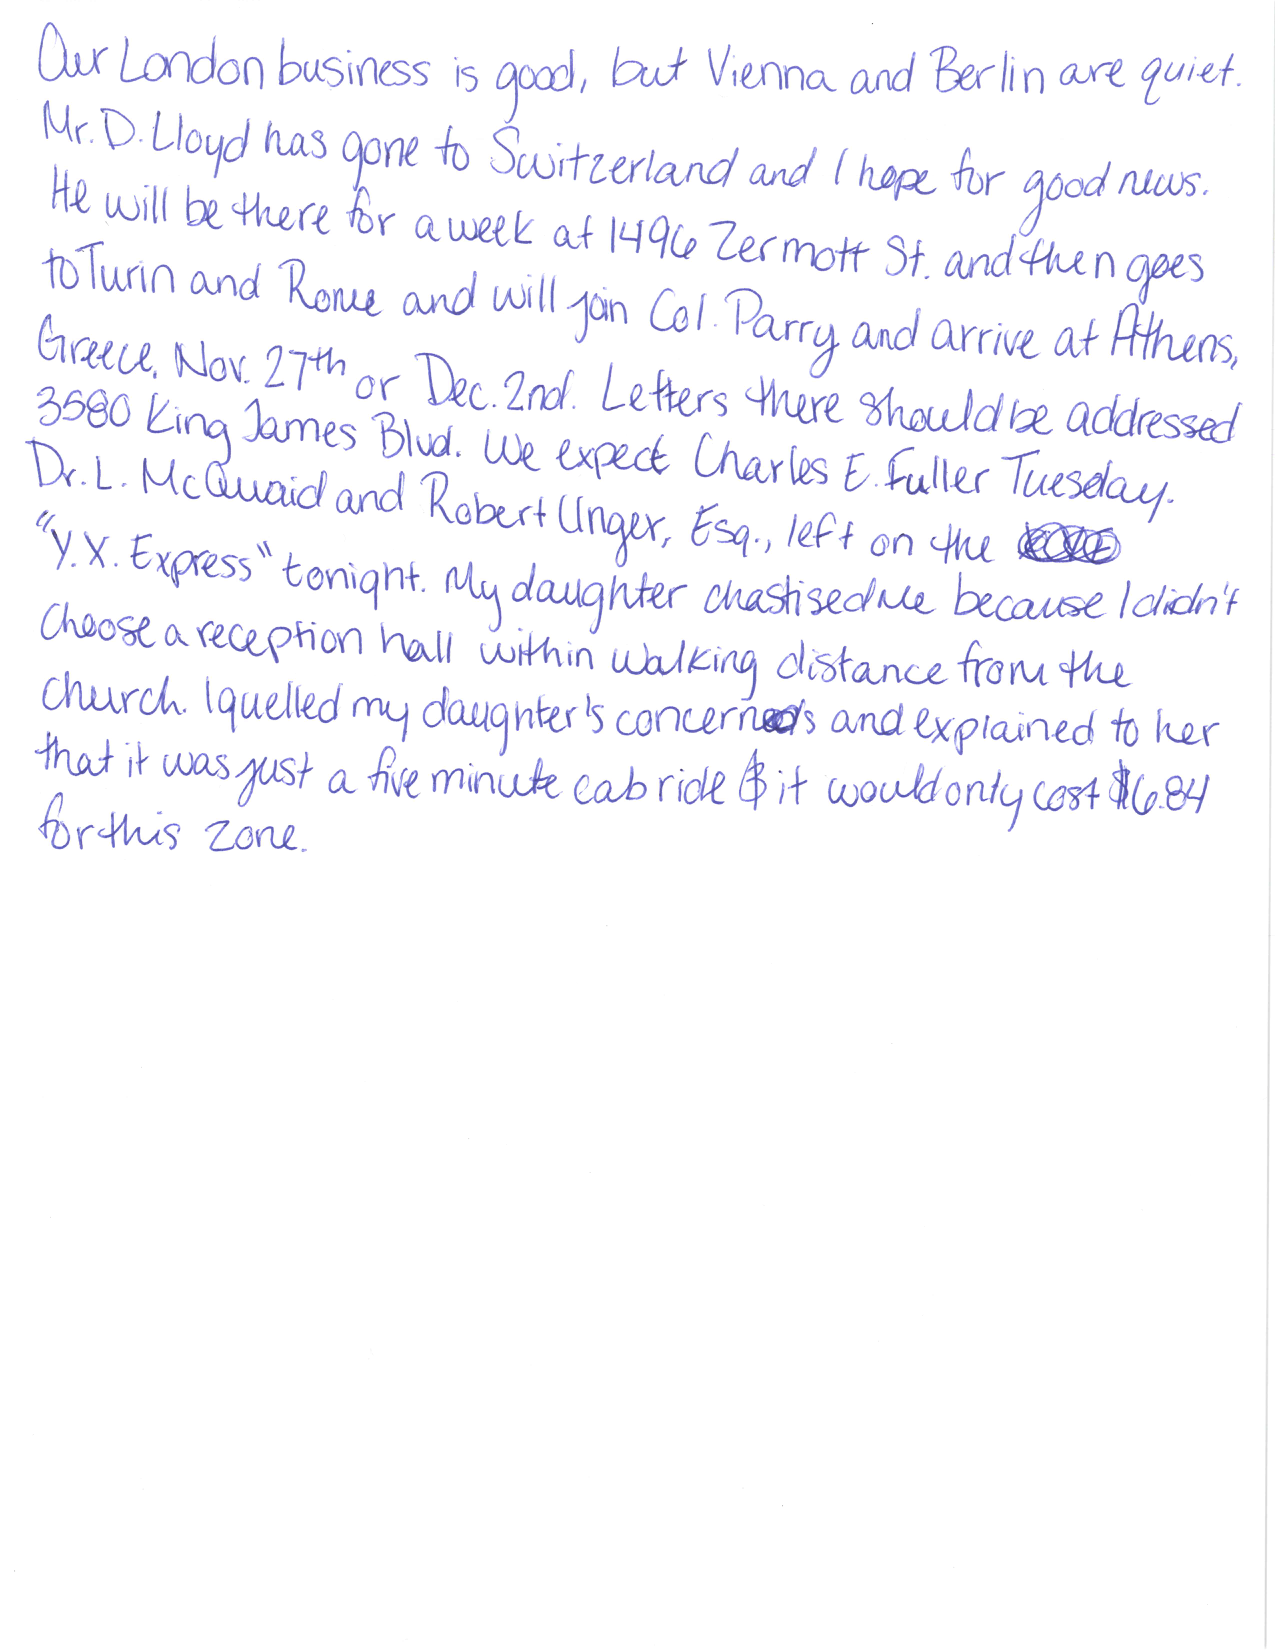 Our London business is good, but Vienna and Berlin are quiet.
Mr. D. Lloyd has gone to Switzerland and I hope for good news.
He will be there for a week at 1496 Zermott St. and then goes
to Turin and Rome and will join Col. Parry and arrive at Athens,
Greece, Nov. 27th or Dec. 2nd. Letters there should be addressed
3580 King James Blvd. We expect Charles E. Fuller Tuesday.
Dr. L. McQuaid and Robert Unger, Esq., left on the
"Y.X. Express" tonight. My daughter chastised me because I didn't
choose a reception hall within walking distance from the
church. I quelled my daughter's concerns and explained to her
that it was just a five minute cab ride & it would only cost $6.84
for this zone.